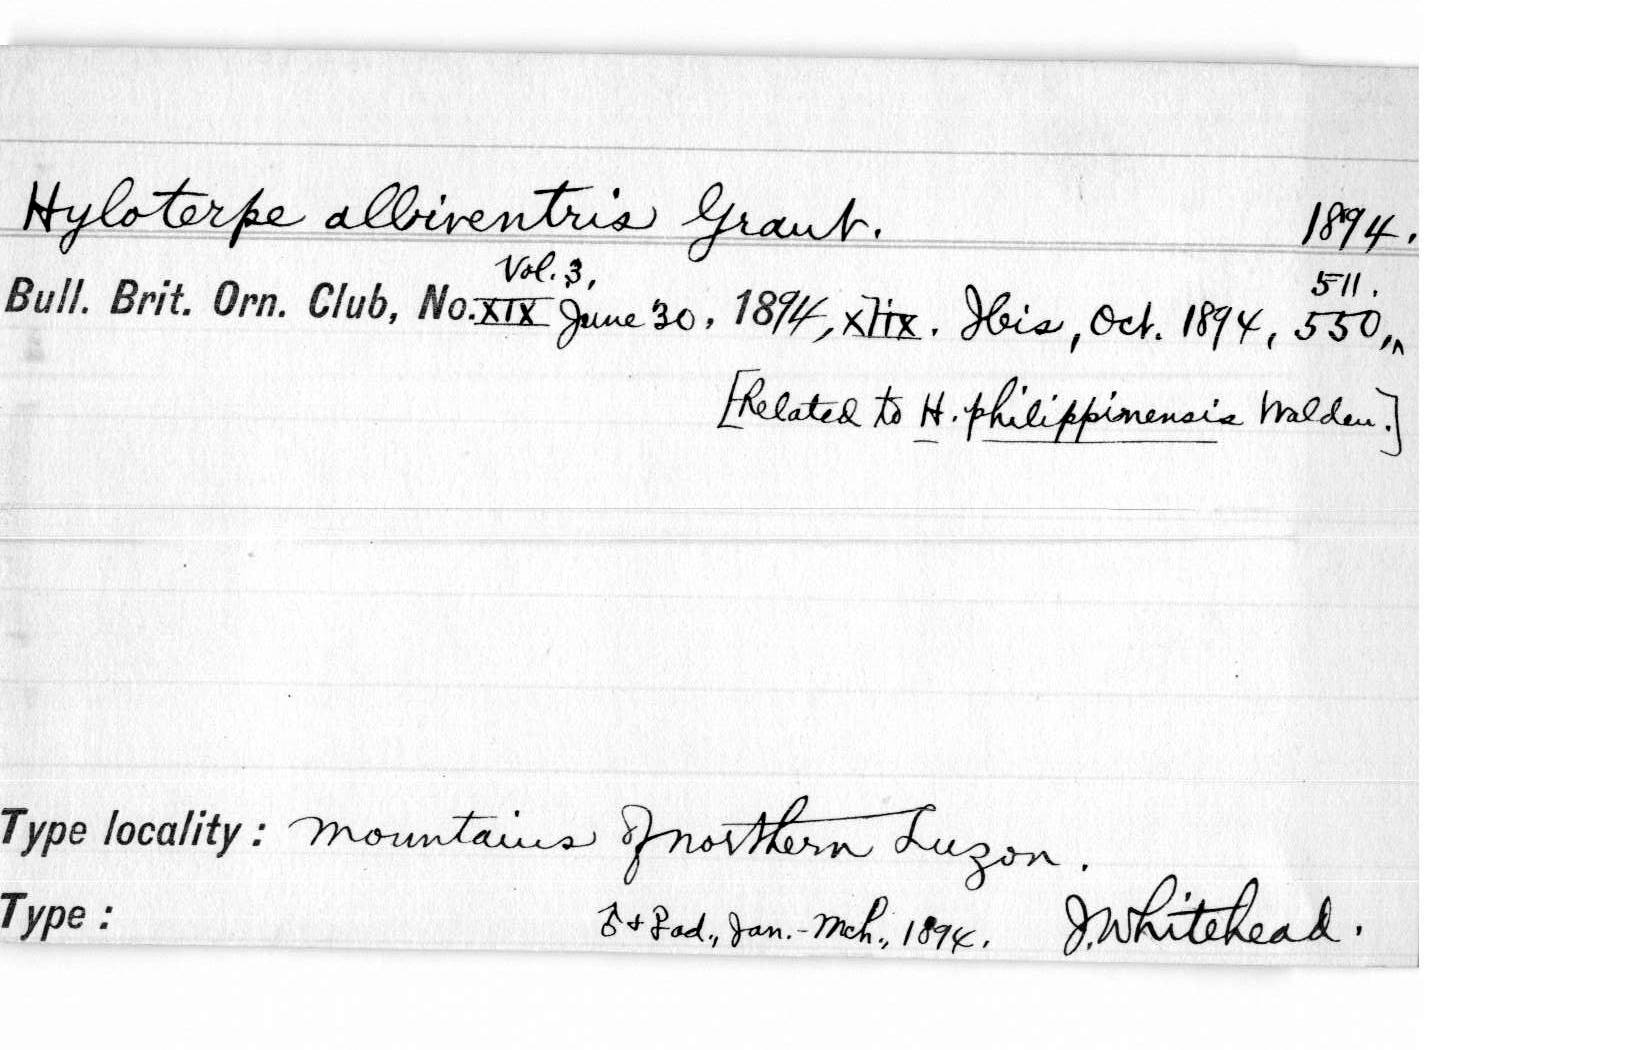 Hyloterpe albiventris Grant. 1894.
Vol. 3, 511.
Bull. Brit. Orn. Club, No. XIX June 30, 1894, xlix. Ibis, Oct. 1894, 550,^
[Related to H. philippinensis Walden.]
Type locality: Mountains of northern Luzon.
Type: ♂ + ♀ ad., Jan.-Mch., 1894. J. Whitehead.